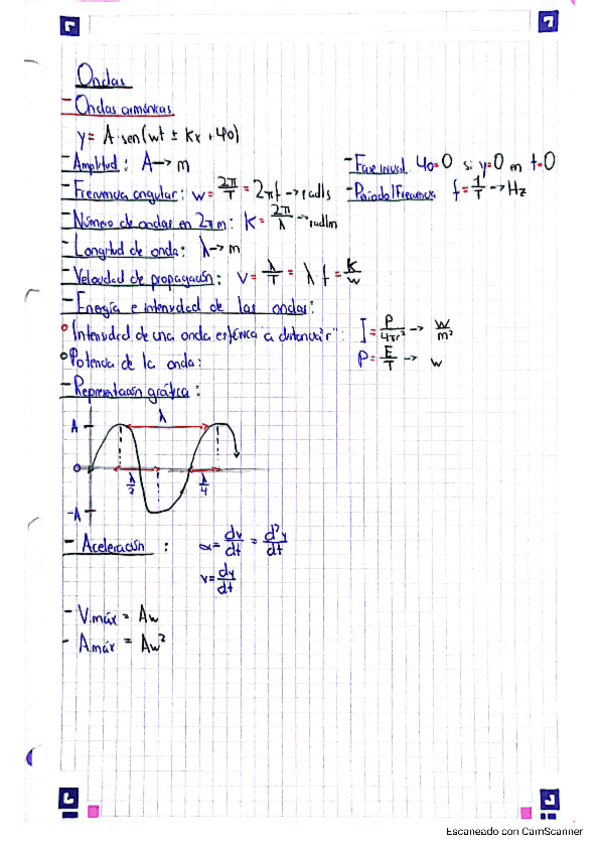 Ondas
- Ondas armónicas
y = A·sen(wt ± Kx + φo)
- Amplitud : A → m
- Fase inicial φo=0 si y=0 m t=0
- Frecuencia angular : w = 2π/T = 2πf → rad/s
- Periodo/Frecuencia f = 1/T → Hz
- Número de ondas en 2π m : K = 2π/λ → rad/m
- Longitud de onda : λ → m
- Velocidad de propagación : v = λ/T = λ f = K/w
- Energía e intensidad de las ondas :
Intensidad de una onda esférica a distancia "r" : I = P/4πr² → W/m²
Potencia de la onda : P = E/T → w
- Representación gráfica :
λ
A
0
λ/2 λ/4
-A
- Aceleración : a = dv/dt = d²y/dt
v = dy/dt
- V.máx = Aw
- A.máx = Aw²
Escaneado con CamScanner